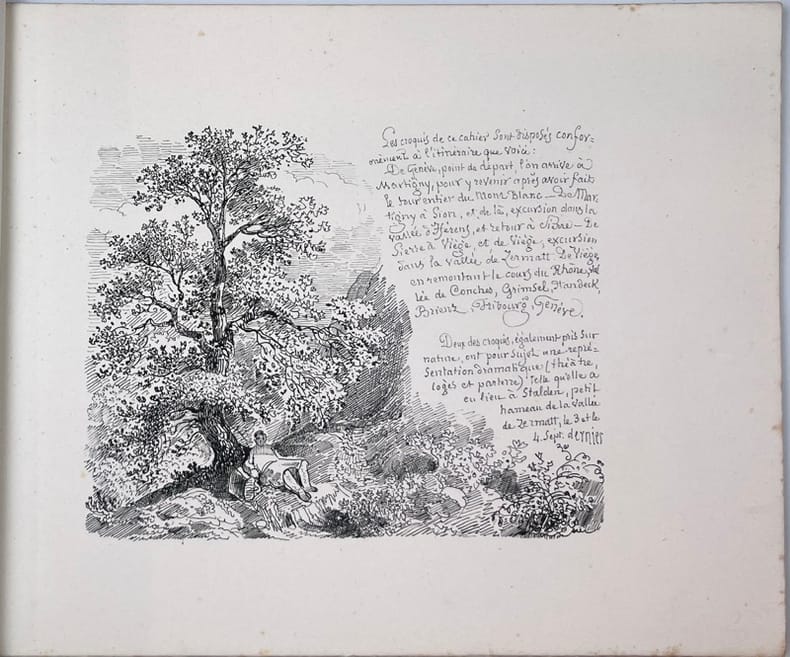 Les croquis de ce cahier sont disposés confor=
mément à l'itinéraire que voici :
De Genève, point de départ, l'on arrive à
Martigny, pour y revenir après avoir fait
le tour entier du Mont Blanc — De Mar=
tigny à Sion, et de là, excursion dans la
vallée d'Hérens, et retour à Sierre — De
Sierre à Viège, et de Viège, excursion
dans la vallée de Zermatt. De Viège,
en remontant le cours du Rhône, val
lée de Conches, Grimsel, Handeck,
Brienz, Fribourg, Genève.
Deux des croquis, également pris sur
nature, ont pour sujet une repré=
sentation dramatique (théâtre,
loges et parterre) telle qu'elle a
eu lieu à Stalden, petit
hameau de la vallée
de Zermatt, le 3 et le
4. Sept. dernier